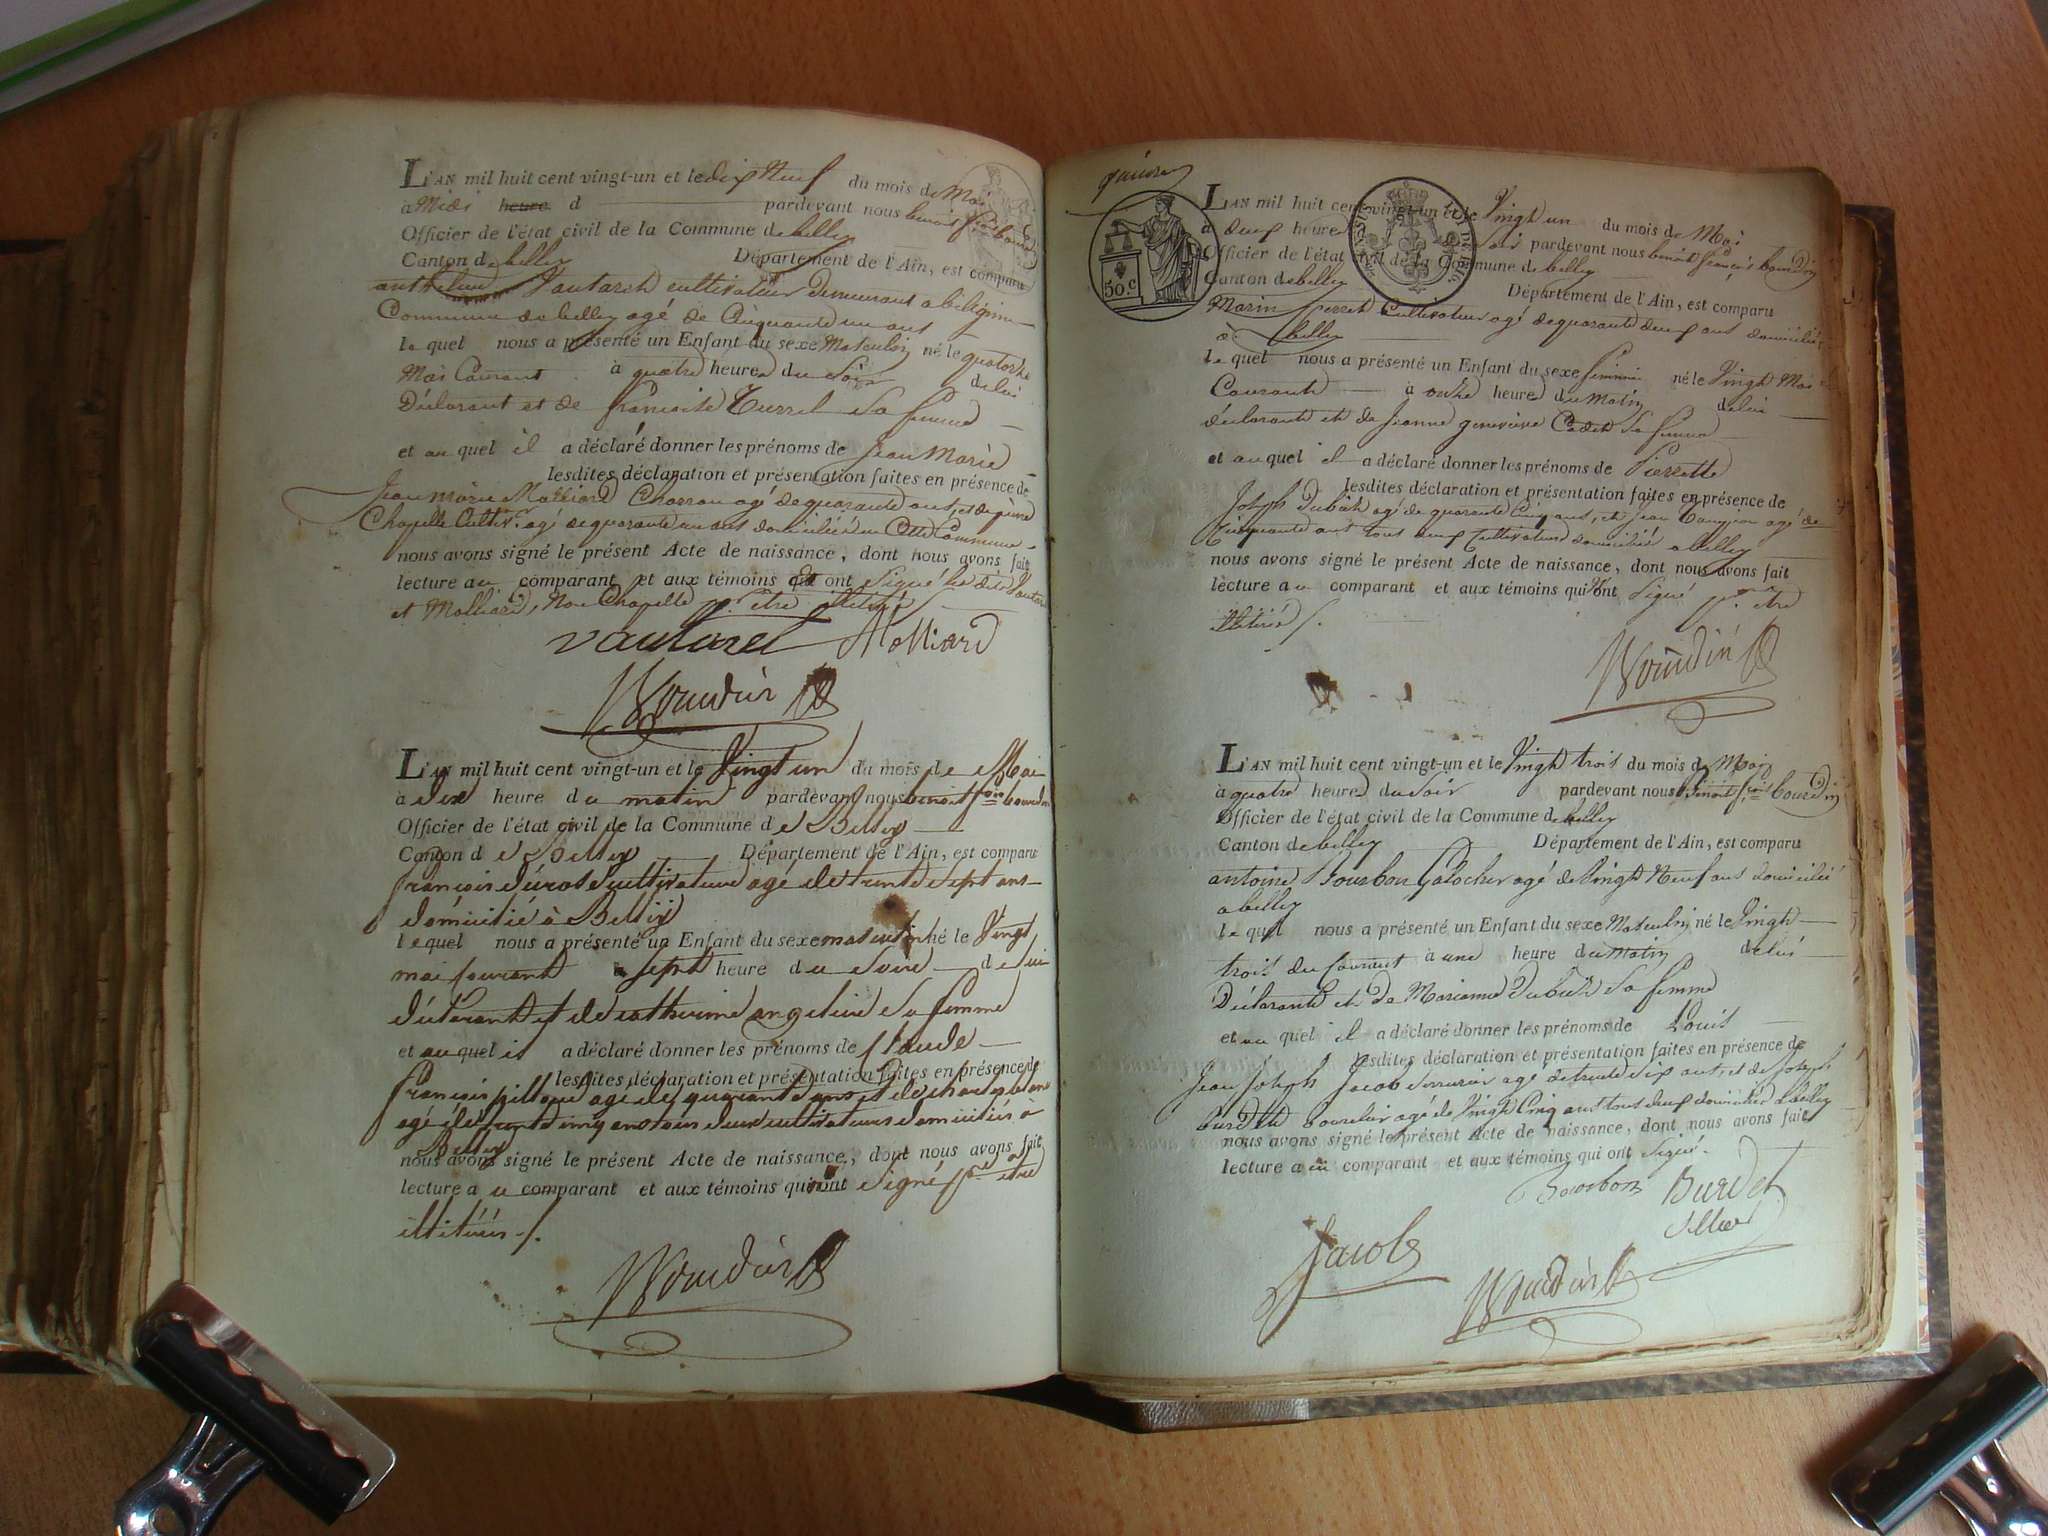 L'AN mil huit cent vingt-un et le dix Neuf du mois de Mai
à Midi heure d pardevant nous benoit fçois bourdin
Officier de l'état civil de la Commune de belley
Canton de belley Département de l'Ain, est comparu
anthelme Vautaret cultivateur demeurant a
Commune de belley agé de Cinquante un ans
le quel nous a présenté un Enfant du sexe Masculin né le quatorze
Mai Courant à quatre heures du Soir de lui
Déclarant et de françoise sa femme
et au quel il a déclaré donner les prénoms de Jean Marie
lesdites déclaration et présentation faites en présence de
Jean Marie Molliard Charron agé de quarante ans, et de pierre
Chapelle Cultivr agé de quarante un ans domiciliés en Cette Commune
nous avons signé le présent Acte de naissance, dont nous avons fait
lecture au comparant et aux témoins qui ont signé les dits Vautaret
et Molliard, Non Chapelle pr. être illitéré
vautaret Molliard
Bourdin
L'AN mil huit cent vingt-un et le Vingt un du mois de Mai
à dix heure du matin pardevant nous benoit fçois bourdin
Officier de l'état civil de la Commune de Belley
Canton de Belley Département de l'Ain, est comparu
françois cultivateur agé de trente sept ans
domicilié à Belley
lequel nous a présenté un Enfant du sexe masculin né le Vingt
mai courant à sept heure du soire de lui
déclarant et de catherine angelier sa femme
et au quel il a déclaré donner les prénoms de Claude
lesdites déclaration et présentation faites en présence de
françois agé de quarante ans et de
agé de cinq ans tous deux cultivateurs domiciliés à
Belley
nous avons signé le présent Acte de naissance, dont nous avons fait
lecture au comparant et aux témoins qui n'ont signé pr être
illitérés
Bourdin
50 c.
L'AN mil huit cent vingt-un et le Vingt un du mois de Mai
à deux heures du Soir pardevant nous benoit françois bourdin
Officier de l'état civil de la Commune de belley
Canton de belley Département de l'Ain, est comparu
Marin Perret Cultivateur agé de quarante deux ans domicilié
à belley
le quel nous a présenté un Enfant du sexe féminin né le Vingt Mai
Courant à onze heures du Matin de lui
déclarant et de Jeanne geneviève Cadet sa femme
et au quel il a déclaré donner les prénoms de Pierrette
lesdites déclaration et présentation faites en présence de
Joseph Dubois agé de quarante Cinq ans, et Jean agé de
Cinquante ans tous deux Cultivateurs domiciliés a belley
nous avons signé le présent Acte de naissance, dont nous avons fait
lecture au comparant et aux témoins qui n'ont signé pr. être
illitérés
Bourdin
L'AN mil huit cent vingt-un et le Vingt trois du mois de Mai
à quatre heures du Soir pardevant nous benoit fçois bourdin
Officier de l'état civil de la Commune de belley
Canton de belley Département de l'Ain, est comparu
antoine Bourbon Galocher agé de Vingt Neuf ans domicilié
a belley
le quel nous a présenté un Enfant du sexe Masculin né le Vingt
trois du Courant à une heure du Matin de lui
Déclarant et de Marianne Dubois sa femme
et au quel il a déclaré donner les prénoms de Louis
lesdites déclaration et présentation faites en présence de
Jean Joseph Jacob Serrurier agé de trente six ans, et de Joseph
burdet bourelier agé de Vingt Cinq ans tous deux domiciliés a belley
nous avons signé le présent Acte de naissance, dont nous avons fait
lecture au comparant et aux témoins qui ont signé.
Bourbon Burdet
Jacob
Bourdin